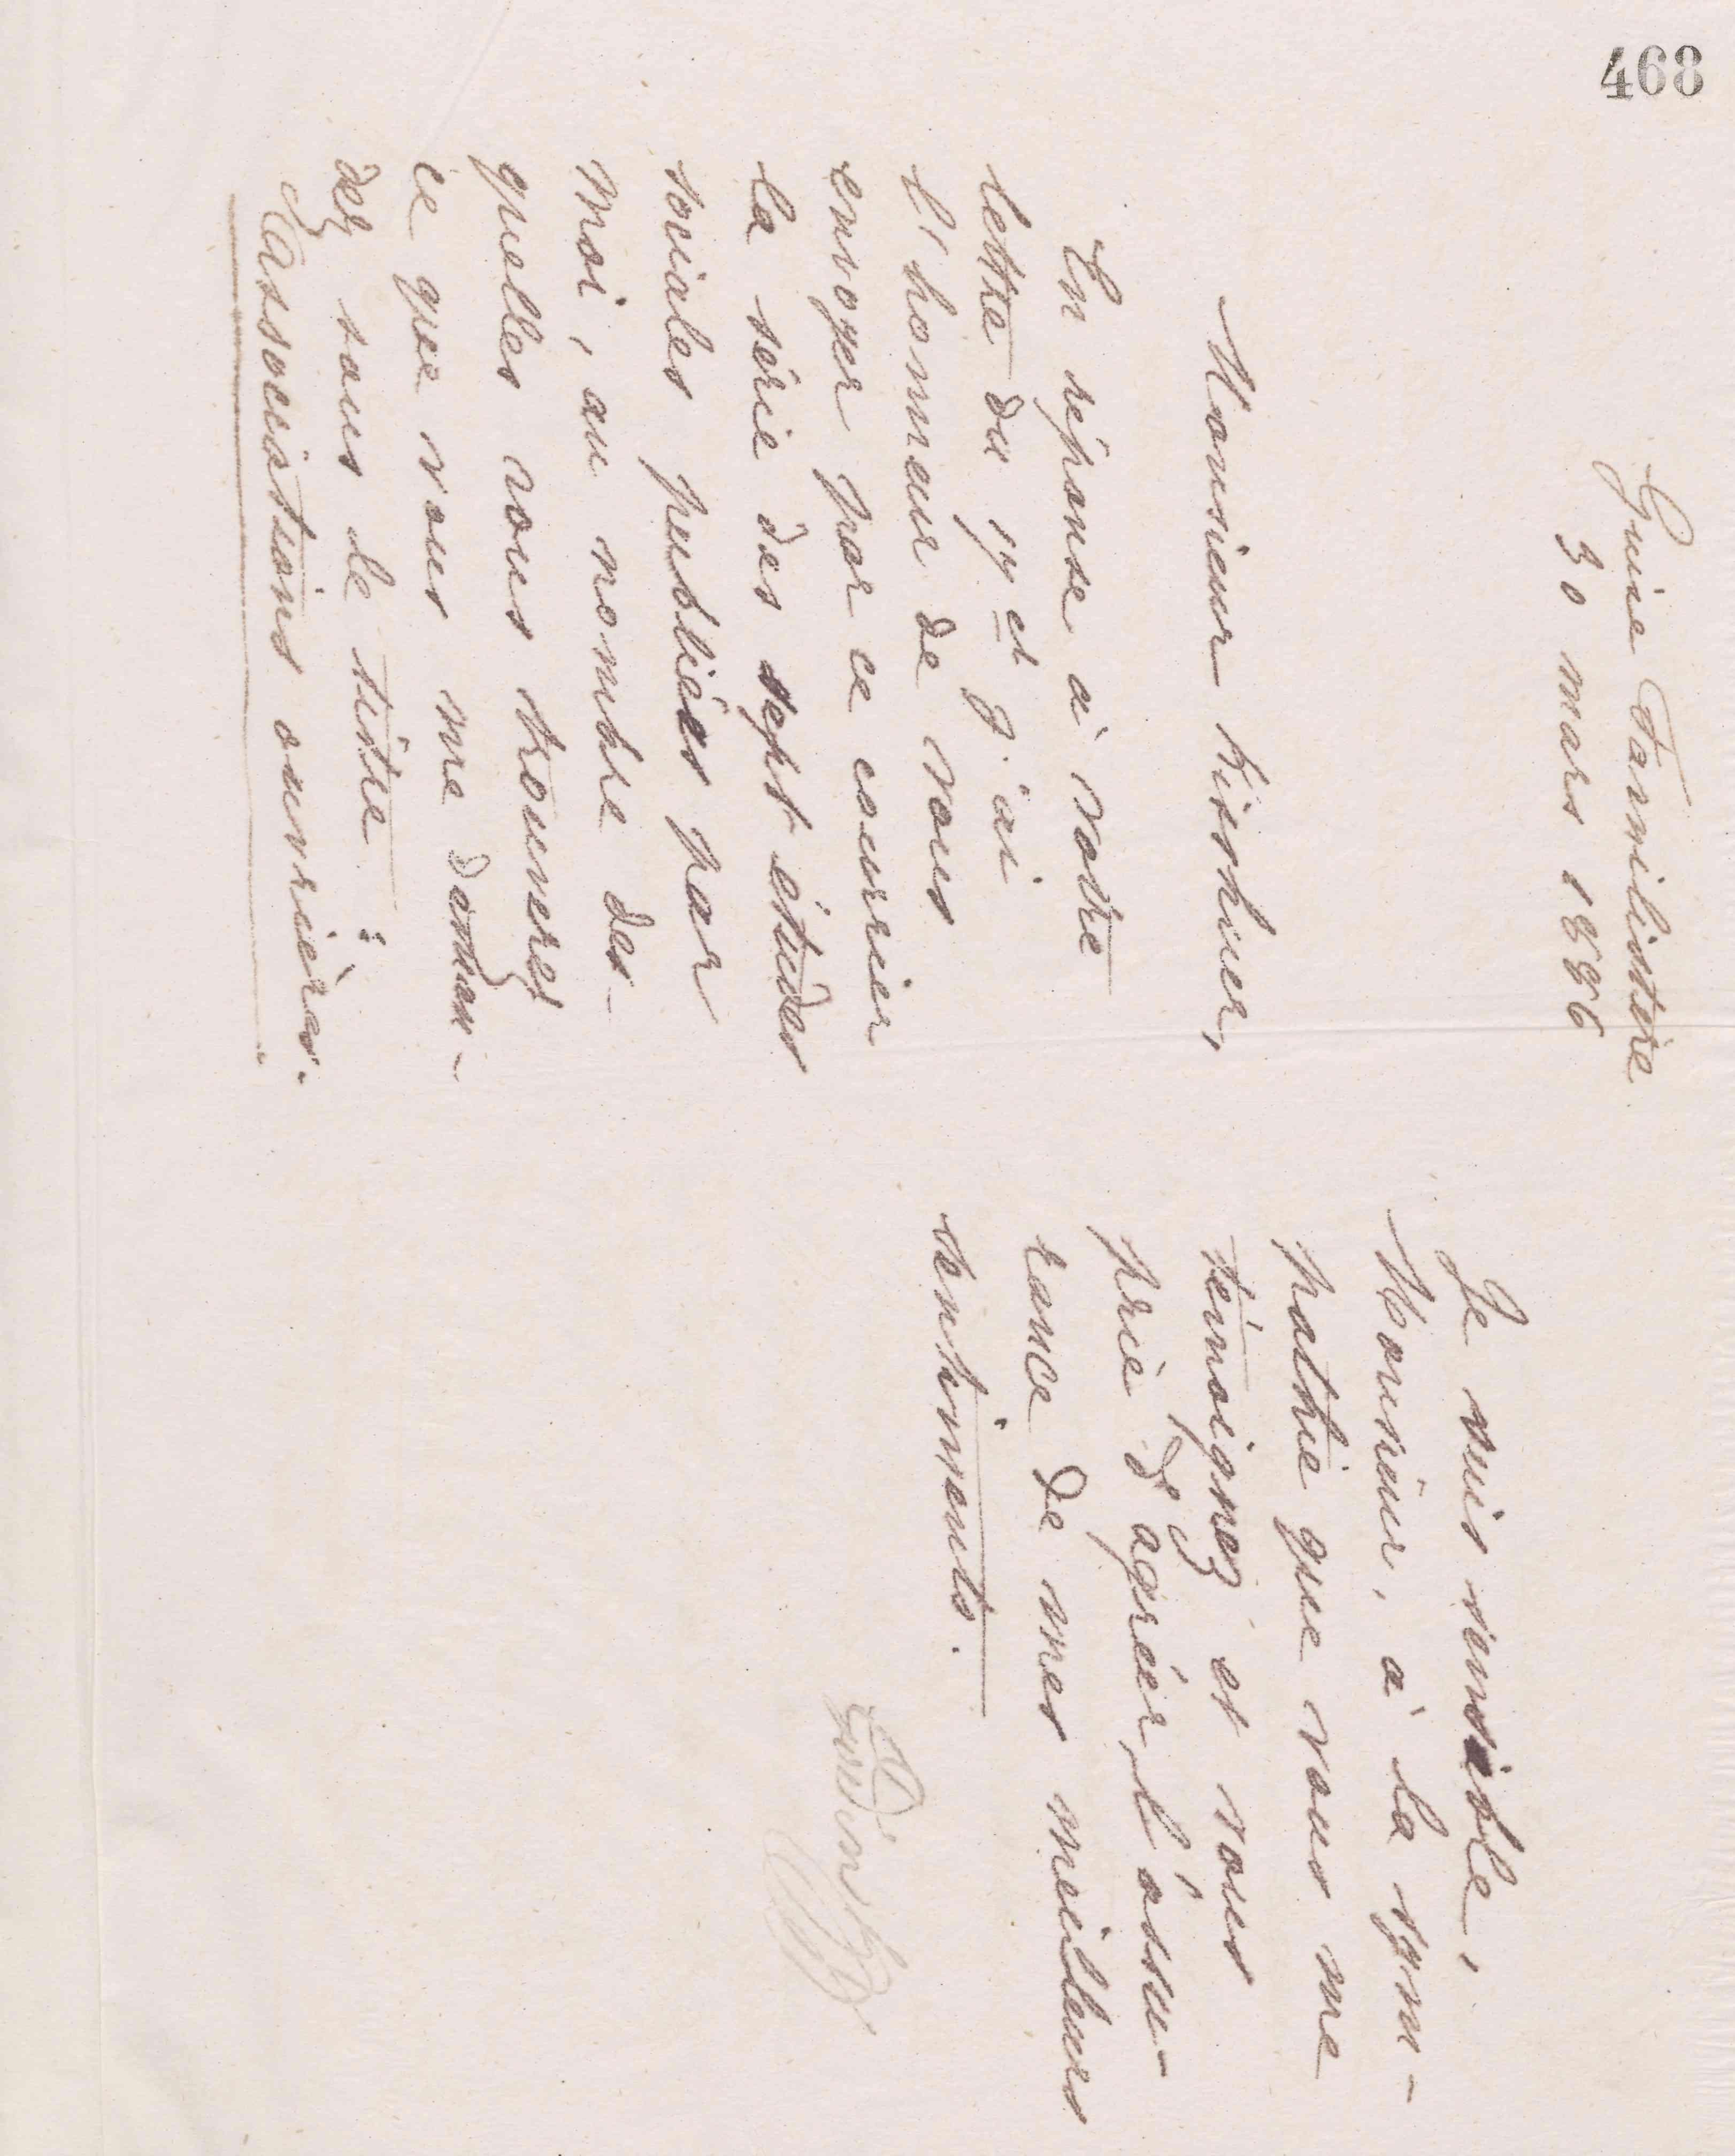 468
Guise Familistère
30 mars 1886
Monsieur Kirchner,
En réponse à votre
lettre du 17 ct j'ai
l'honneur de vous
envoyer par ce courrier
la série des sept études
sociales publiées par
moi, au nombre des-
quelles vous trouverez
ce que vous me deman-
dez sous le titre :
Associations ouvrières.
Je suis sensible,
Monsieur, à la sym-
pathie que vous me
témoignez et vous
prie d'agréer, l'assu-
rance de mes meilleurs
sentiments.
Godin